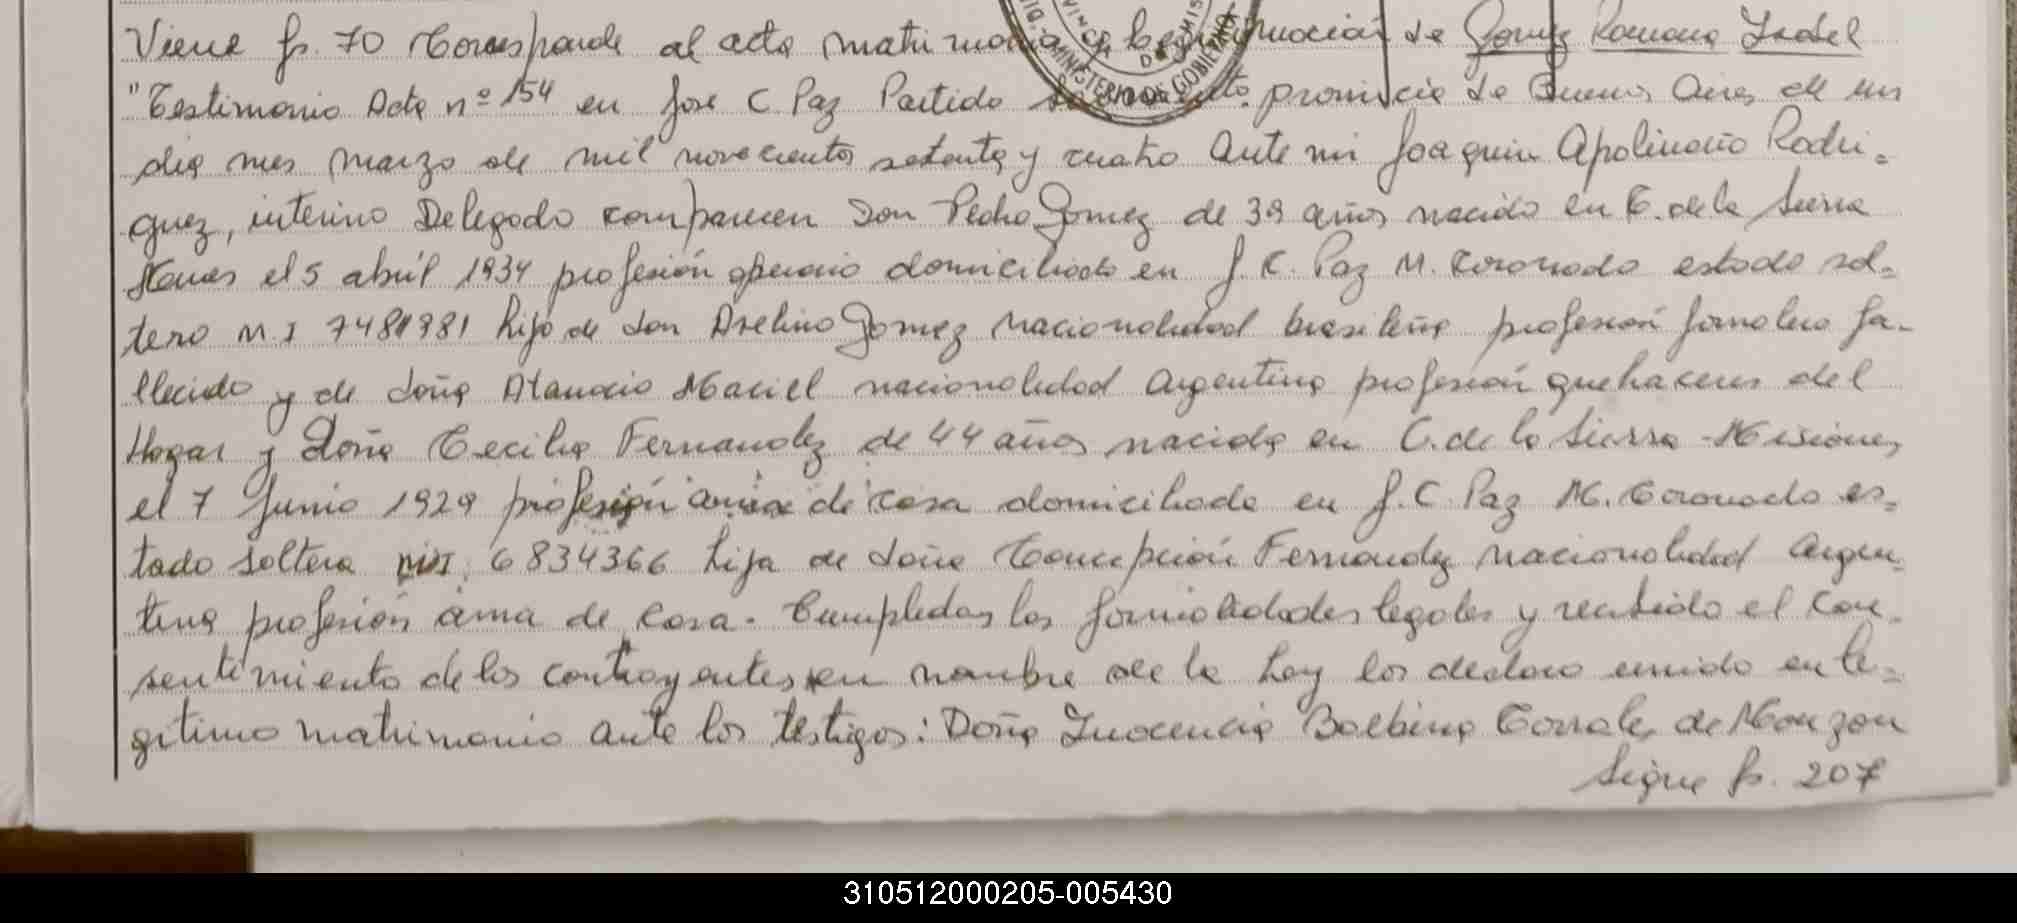 Viene fs. 70 Corresponde al acta matrimonio legitimación de Gomez Ramona Isabel
"Testimonio Acta nº 154 en Jose C. Paz Partido provincia de Buenos Aires de un
dia mes Marzo de mil novecientos setenta y cuatro Ante mi Joaquin Apolinario Rodri-
guez, interino Delegado comparecen Don Pedro Gomez de 39 años nacido en C. de la Sierra
el 5 abril 1934 profesión operario domiciliado en J. C. Paz M. Coronado estado sol-
tero M. I 7481981 hijo de don Avelino Gomez nacionalidad brasileña profesión jornalero fa-
llecido y de doña Atanacia Maciel nacionalidad Argentina profesión quehaceres del
Hogar y Doña Cecilia Fernandez de 44 años nacida en C. de la Sierra - Misiones
el 7 Junio 1929 profesión ama de casa domiciliada en J. C. Paz M. Coronado es-
tado soltera MI. 6834366 hija de doña Concepción Fernandez nacionalidad Argen-
tina profesión ama de casa. Cumplidas las formalidades legales y recibido el con-
sentimiento de los contrayentes en nombre de la Ley los declaro unido en le-
gitimo matrimonio ante los testigos: Doña Inocencia Balbina Corrales de Monzon
Sigue fs. 207
310512000205-005430